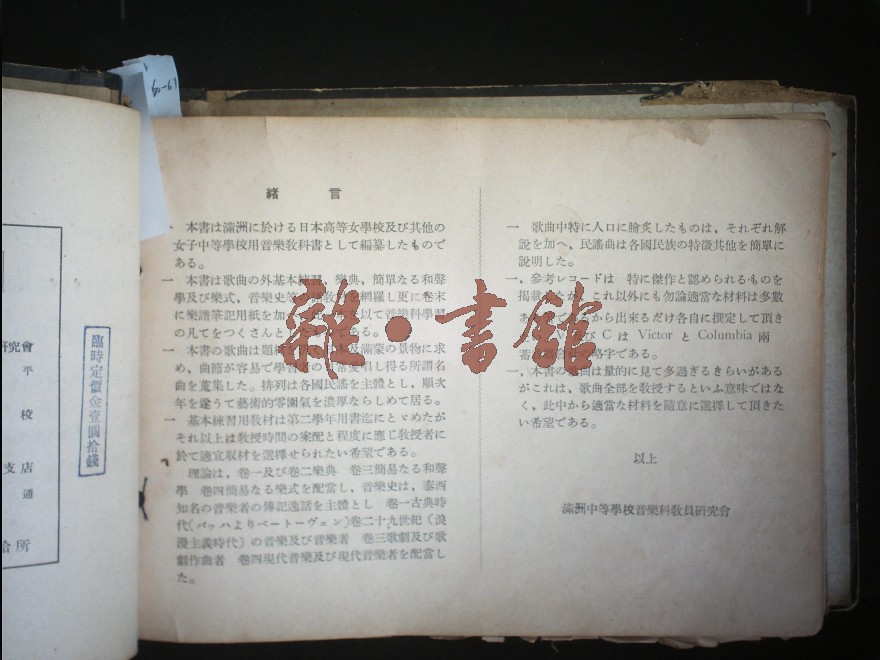 緒言
一 本書は滿洲に於ける日本高等女學校及び其他の
女子中等學校用音樂教科書として編纂したもので
ある。
一 本書は歌曲の外基本練習、樂典、簡單なる和聲
學及び樂式、音樂史等の教材を網羅し更に卷末
に樂譜筆記用紙を加へ 以て音樂科學習
の凡てをつくさんと である。
一 本書の歌曲は題材を 及滿蒙の景物に求
め、曲節が容易で學習 常愛唱し得る所謂名
曲を蒐集した。排列は各國民謠を主體とし、順次
年を逐うて藝術的雰圍氣を濃厚ならしめて居る。
一 基本練習用教材は第二學年用書迄にとゞめたが
それ以上は教授時間の案配と程度に應じ教授者に
於て適宜取材を選擇せられたい希望である。
理論は、卷一及び卷二樂典 卷三簡易なる和聲
學 卷四簡易なる樂式を配當し、音樂史は、泰西
知名の音樂者の傳記逸話を主體とし 卷一古典時
代(バッハよりベートーヴェン)卷二十九世紀(浪
漫主義時代)の音樂及び音樂者 卷三歌劇及び歌
劇作曲者 卷四現代音樂及び現代音樂者を配當し
た。
一 歌曲中特に人口に膾炙したものは、それぞれ解
說を加へ、民謠曲は各國民族の特徵其他を簡單に
說明した。
一、參考レコードは 特に傑作と認められるものを
掲載 これ以外にも勿論適當な材料は多數
ある から出來るだけ各自に撰定して頂き
び C は Victor と Columbia 兩
蓄 略字である。
一、本書の 曲は量的に見て多過ぎるきらいがある
がこれは、歌曲全部を教授するといふ意味ではな
く、此中から適當な材料を隨意に選擇して頂きた
い希望である。
以上
滿洲中等學校音樂科教員研究會
臨時定價金壹圓拾錢
研究會
平
校
支店
通
給所
19-69
雜·書館